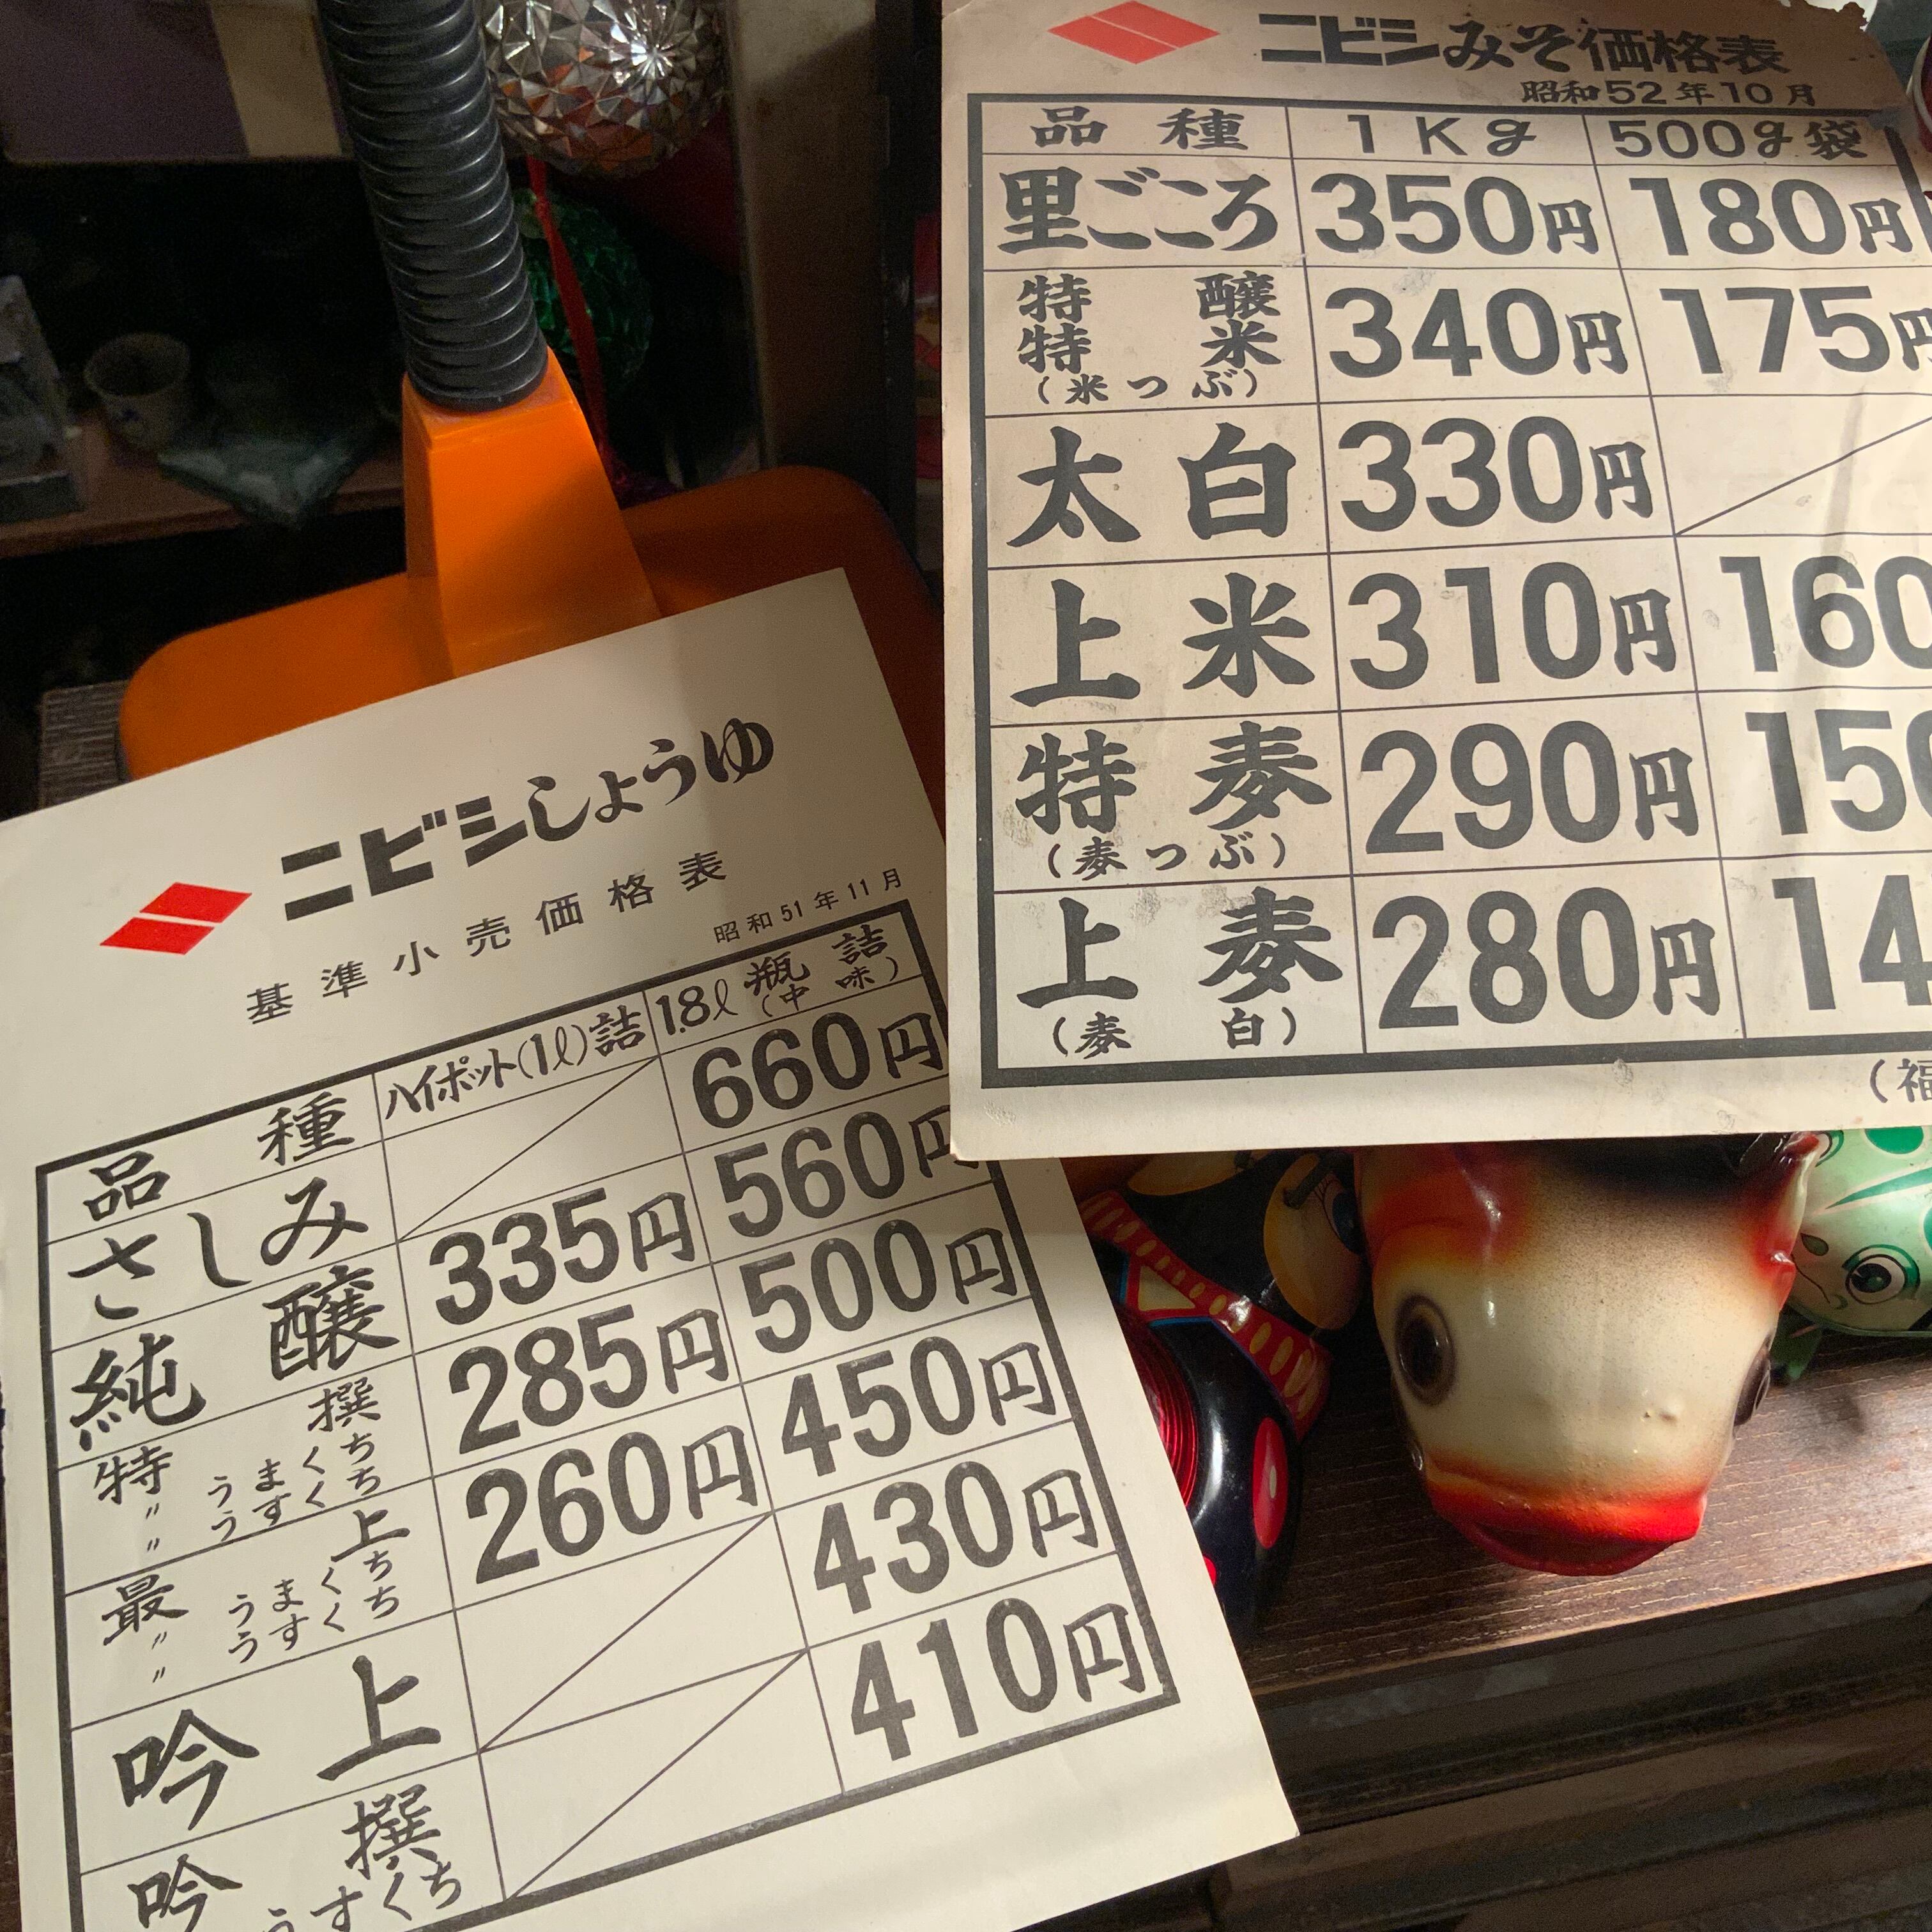 ニビシみそ価格表
昭和52年10月
品種 1Kg 500g袋
里ごころ 350円 180円
特醸
特米
(米つぶ) 340円 175円
太白 330円
上米 310円 160
特麦
(麦つぶ) 290円 150
上麦
(麦白) 280円 14
(福
ニビシしょうゆ
基準小売価格表
昭和51年11月
品種 ハイポット(1ℓ)詰 1.8ℓ瓶詰
(中味)
さしみ 660円
純醸 335円 560円
特撰
〃うまくち
〃うすくち 285円 500円
最上
〃うまくち
〃うすくち 260円 450円
吟上 430円
吟撰
うすくち 410円